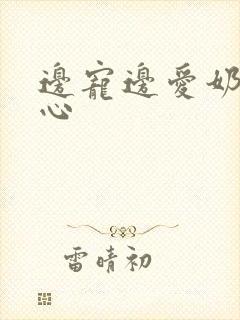 邊寵邊愛奶
心
雷晴初